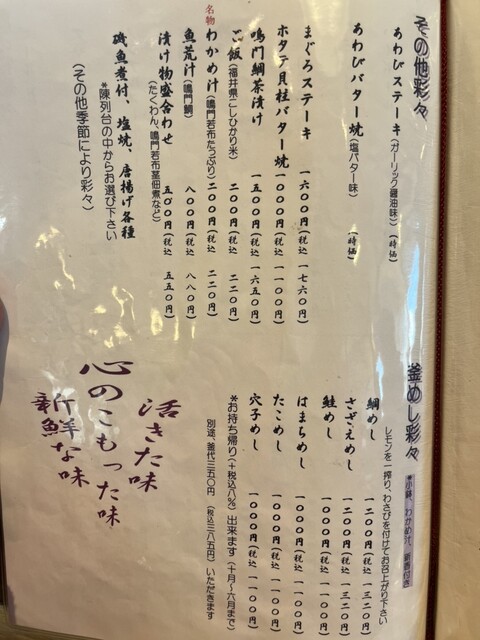 その他彩々
あわびステーキ(ガーリック醤油味)(時価)
あわびバター焼(塩バター味)(時価)
まぐろステーキ 一六〇〇円(税込 一七六〇円)
ホタテ貝柱バター焼 一〇〇〇円(税込 一一〇〇円)
鳴門鯛茶漬け 一五〇〇円(税込 一六五〇円)
ご飯(福井県こしひかり米) 二〇〇円(税込 二二〇円)
名物 わかめ汁(鳴門若布たっぷり) 二〇〇円(税込 二二〇円)
魚荒汁(鳴門鯛) 八〇〇円(税込 八八〇円)
漬け物盛合わせ 五〇〇円(税込 五五〇円)
(たくわん、鳴門若布茎佃煮など)
磯魚煮付、塩焼、唐揚げ各種
*陳列台の中からお選び下さい
(その他季節により彩々)
釜めし彩々
*小鉢、わかめ汁、新香付き
レモンを一搾り、わさびを付けてお召上がり下さい
鯛めし 一二〇〇円(税込 一三二〇円)
さざえめし 一二〇〇円(税込 一三二〇円)
鮭めし 一〇〇〇円(税込 一一〇〇円)
はまちめし 一〇〇〇円(税込 一一〇〇円)
たこめし 一〇〇〇円(税込 一一〇〇円)
穴子めし 一〇〇〇円(税込 一一〇〇円)
*お持ち帰り(+税込八%)出来ます(十月〜六月まで)
別途、釜代三五〇円(税込三八五円)いただきます
活きた味
心のこもった味
新鮮な味